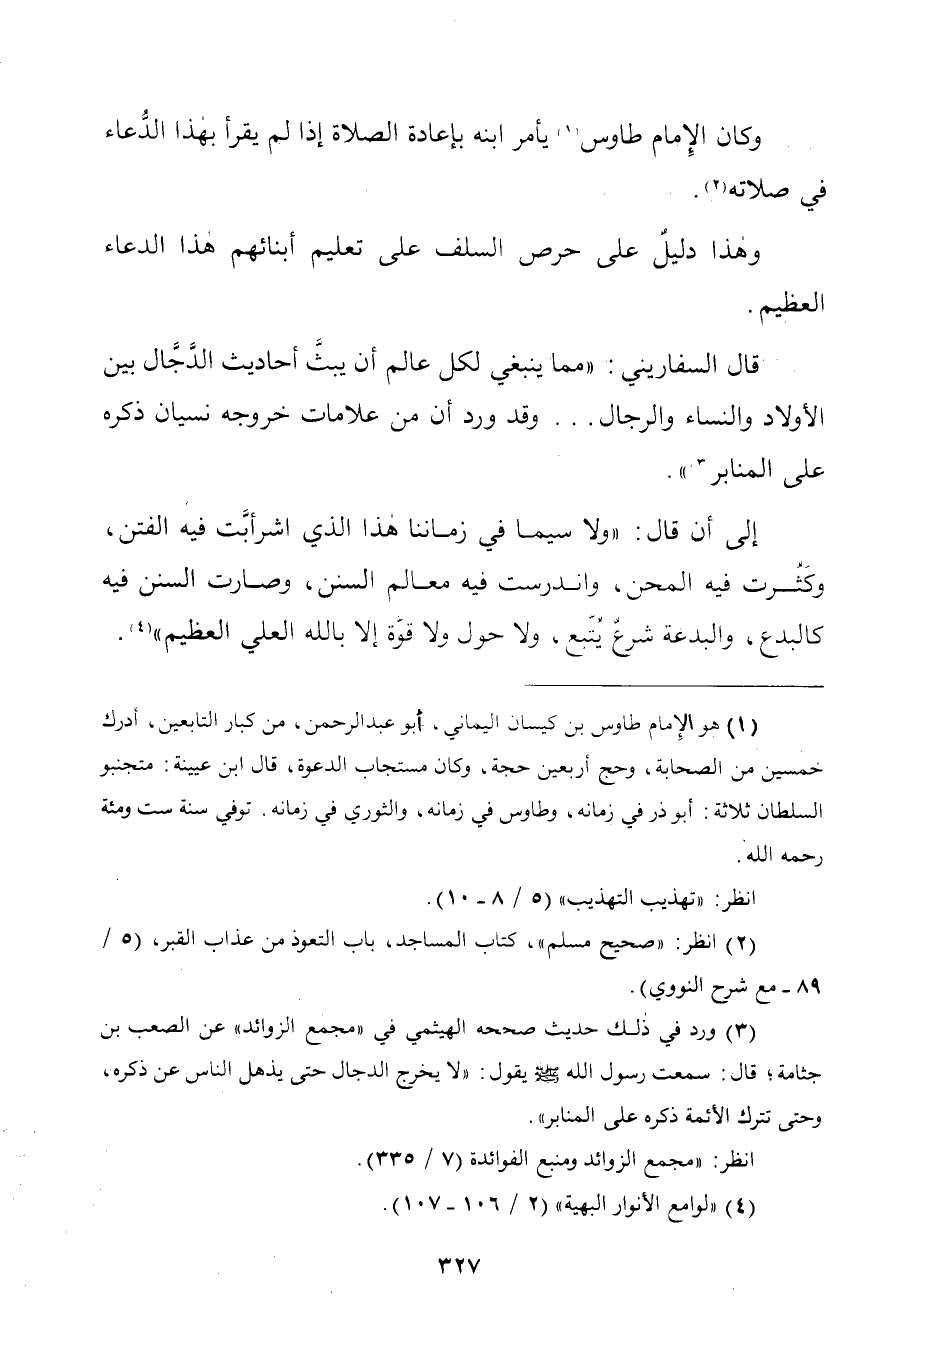 وكان الإمام طاوس(١) يأمر ابنه بإعادة الصلاة إذا لم يقرأ بهٰذا الدُّعاء
في صلاته(٢).
وهٰذا دليلٌ على حرص السلف على تعليم أبنائهم هٰذا الدعاء
العظيم.
قال السفاريني: «مما ينبغي لكل عالم أن يبثَّ أحاديث الدَّجَّال بين
الأولاد والنساء والرجال... وقد ورد أن من علامات خروجه نسيان ذكره
على المنابر(٣)».
إلى أن قال: «ولا سيما في زماننا هٰذا الذي اشرأبَّت فيه الفتن،
وكَثُرت فيه المحن، واندرست فيه معالم السنن، وصارت السنن فيه
كالبدع، والبدعة شرعٌ يُتَّبع، ولا حول ولا قوَّة إلا بالله العلي العظيم»(٤).
(١) هو الإمام طاوس بن كيسان اليماني، أبو عبدالرحمن، من كبار التابعين، أدرك
خمسين من الصحابة، وحج أربعين حجة، وكان مستجاب الدعوة، قال ابن عيينة: متجنبو
السلطان ثلاثة: أبو ذر في زمانه، وطاوس في زمانه، والثوري في زمانه. توفي سنة ست ومئة
رحمه الله.
انظر: «تهذيب التهذيب» (٥ / ٨ - ١٠).
(٢) انظر: «صحيح مسلم»، كتاب المساجد، باب التعوذ من عذاب القبر، (٥ /
٨٩ - مع شرح النووي).
(٣) ورد في ذٰلك حديث صححه الهيثمي في «مجمع الزوائد» عن الصعب بن
جثامة؛ قال: سمعت رسول الله ﷺ يقول: «لا يخرج الدجال حتى يذهل الناس عن ذكره،
وحتى تترك الأئمة ذكره على المنابر».
انظر: «مجمع الزوائد ومنبع الفوائدة (٧ / ٣٣٥).
(٤) «لوامع الأنوار البهية» (٢ / ١٠٦ - ١٠٧).
٣٢٧